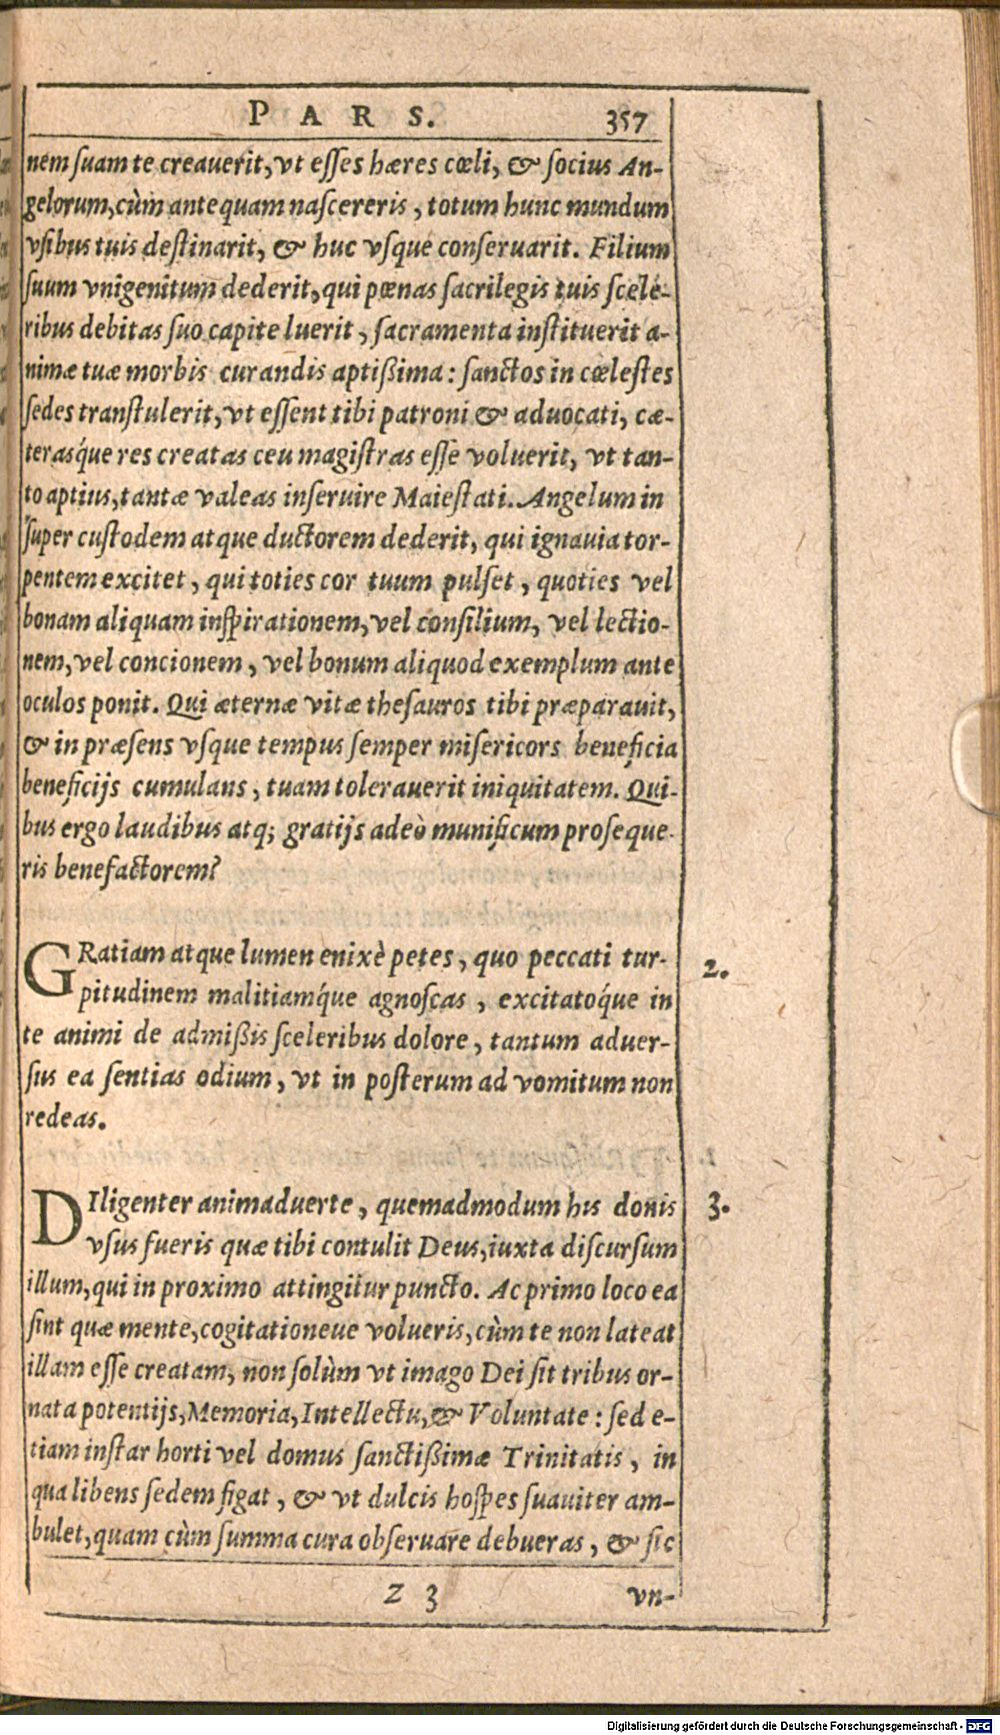 PARS. 357
nem ſuam te creauerit, vt eſſes hæres cœli, & ſocius An-
gelorum, cùm antequam naſcereris, totum hunc mundum
vſibus tuis deſtinarit, & huc vſque conſeruarit. Filium
ſuum vnigenitum dederit, qui pœnas ſacrilegis tuis ſcele-
ribus debitas ſuo capite luerit, ſacramenta inſtituerit a-
nimæ tuæ morbis curandis aptißima: ſanctos in cœleſtes
ſedes tranſtulerit, vt eſſent tibi patroni & aduocati, cæ-
terasq́ue res creatas ceu magiſtras eſſe voluerit, vt tan-
to aptius, tantæ valeas inſeruire Maieſtati. Angelum in
ſuper cuſtodem atque ductorem dederit, qui ignauia tor-
pentem excitet, qui toties cor tuum pulſet, quoties vel
bonam aliquam inſpirationem, vel conſilium, vel lectio-
nem, vel concionem, vel bonum aliquod exemplum ante
oculos ponit. Qui æternæ vitæ theſauros tibi præparauit,
& in præſens vſque tempus ſemper miſericors beneficia
beneficijs cumulans, tuam tolerauerit iniquitatem. Qui-
bus ergo laudibus atq; gratijs adeò munificum proſeque-
ris benefactorem?
GRatiam atque lumen enixè petes, quo peccati tur-
2.
pitudinem malitiamq́ue agnoſcas, excitatoq́ue in
te animi de admißis ſceleribus dolore, tantum aduer-
ſus ea ſentias odium, vt in poſterum ad vomitum non
redeas.
DIligenter animaduerte, quemadmodum his donis
3.
vſus fueris quæ tibi contulit Deus, iuxta diſcurſum
illum, qui in proximo attingitur puncto. Ac primo loco ea
ſint quæ mente, cogitationeue volueris, cùm te non lateat
illam eſſe creatam, non ſolùm vt imago Dei ſit tribus or-
nata potentijs, Memoria, Intellectu, & Voluntate: ſed e-
tiam inſtar horti vel domus ſanctißimæ Trinitatis, in
qua libens ſedem figat, & vt dulcis hoſpes ſuauiter am-
bulet, quam cùm ſumma cura obſeruare debueras, & ſic
Z 3 vn-
Digitalisierung gefördert durch die Deutsche Forschungsgemeinschaft - DFG